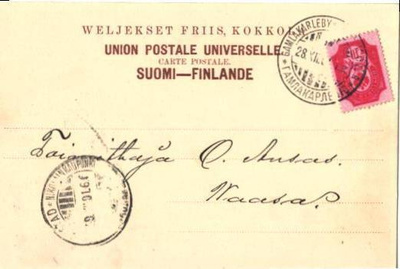 WELJEKSET FRIIS, KOKKOLA
UNION POSTALE UNIVERSELLE.
CARTE POSTALE.
SUOMI—FINLANDE
GAMLAKARLEBY
28.XII.
ГАМЛАКАРЛЕ
Toimittaja O. Ansas.
Waasa.